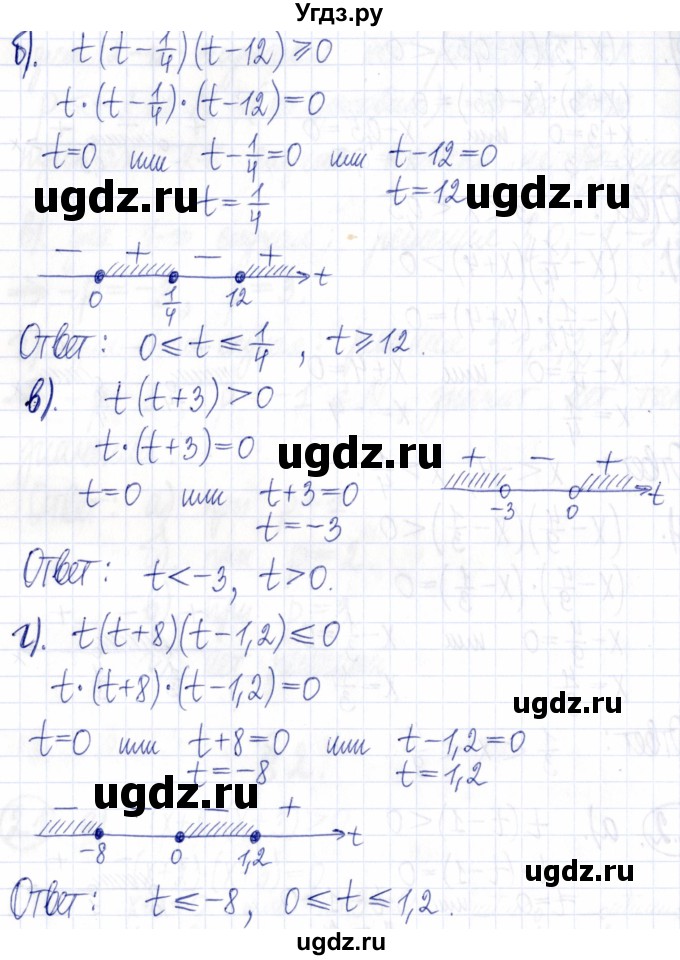 Угдз.ру
б). t(t - 1/4)(t - 12) ≥ 0
t·(t - 1/4)·(t - 12) = 0
t=0 или t - 1/4 = 0 или t - 12 = 0
ugdz.ru t = 1/4 t = 12 ugdz.ru
- + - +
0 1/4 12 t
Ответ: 0 ≤ t ≤ 1/4, t ≥ 12.
в). t(t+3) > 0
t·(t+3) = 0 ugdz.ru
t=0 или t+3=0
t = -3
+ - +
-3 0 t
Ответ: t < -3, t > 0.
г). t(t+8)(t-1,2) ≤ 0
t·(t+8)·(t-1,2) = 0
ugdz.ru
t=0 или t+8=0 или t-1,2=0
t = -8 t = 1,2
ugdz.ru
+
-8 0 1,2 t
ugdz.ru
Ответ: t ≤ -8, 0 ≤ t ≤ 1,2.
ugdz.ru